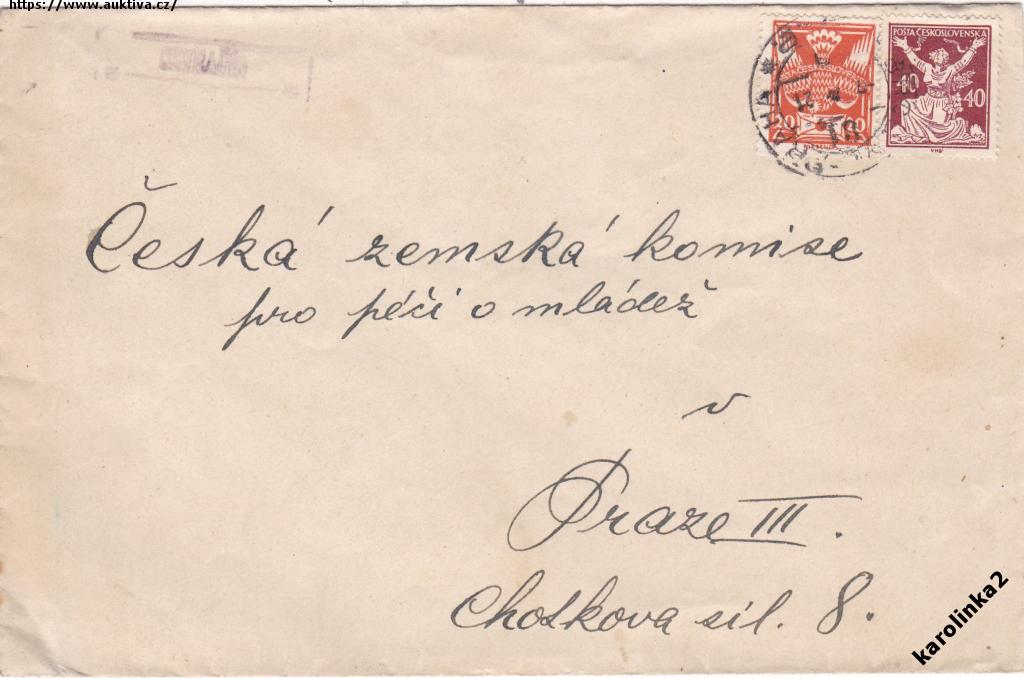 https://www.auktiva.cz/
POŠTA ČESKOSLOVENSKÁ
40 40
20
PRAHA
21
Česká zemská komise
pro péči o mládež
v
Praze III.
Chotkova sil. 8.
karolinka2